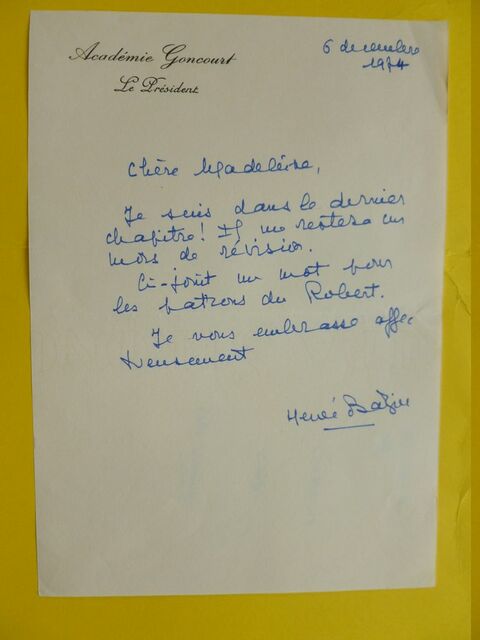 Académie Goncourt
Le Président
6 décembre
1974
Chère Madeleine,
Je suis dans le dernier
chapitre! Il me restera un
mois de révision.
Ci-joint un mot pour
les patrons du Robert.
Je vous embrasse affec
tueusement
Hervé Bazin